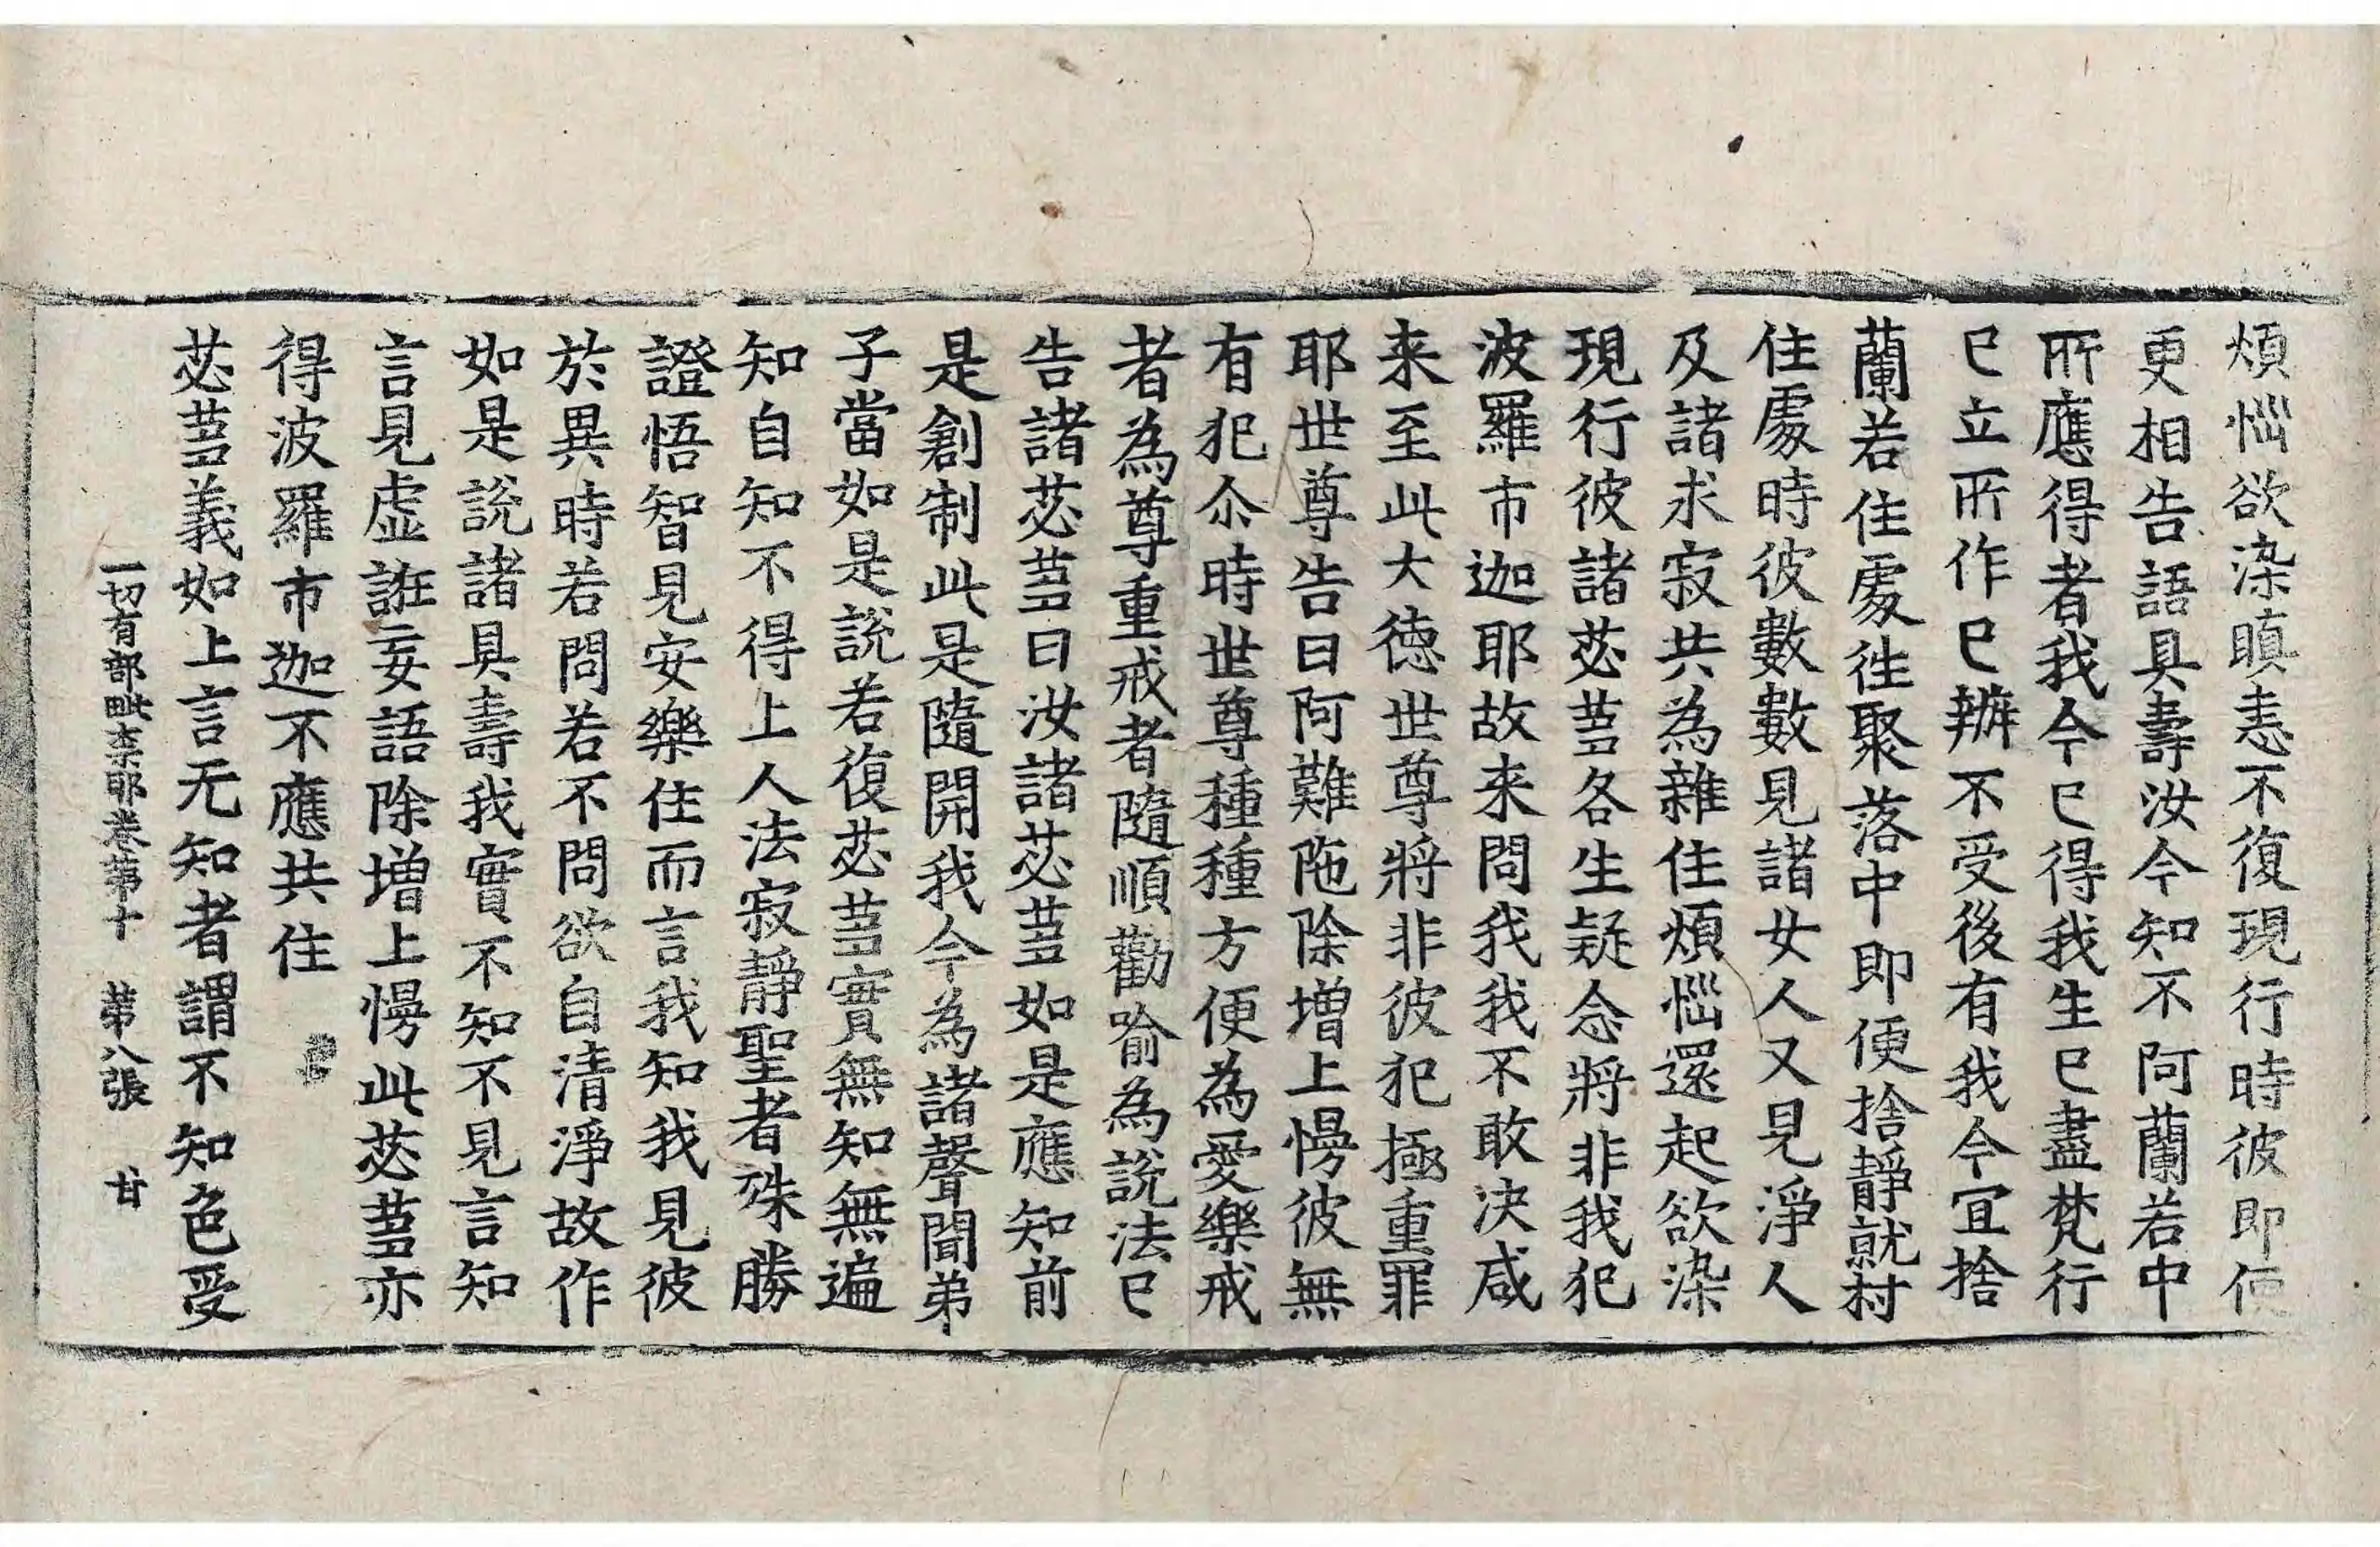 煩惱欲染瞋恚不復現行時彼即便
更相告語具壽汝今知不阿蘭若中
所應得者我今已得我生已盡梵行
已立所作已辦不受後有我今宜捨
蘭若住處徃聚落中即便捨靜就村
住處時彼數數見諸女人又見淨人
及諸求寂共為雜住煩惱還起欲染
現行彼諸苾芻各生疑念將非我犯
波羅市迦耶故来問我我不敢决咸
来至此大德世尊將非彼犯極重罪
耶世尊告曰阿難陁除增上慢彼無
有犯尒時世尊種種方便為愛樂戒
者為尊重戒者隨順勸喻為說法已
告諸苾芻曰汝諸苾芻如是應知前
是創制此是隨開我今為諸聲聞弟
子當如是說若復苾芻實無知無遍
知自知不得上人法寂靜聖者殊勝
證悟智見安樂住而言我知我見彼
於異時若問若不問欲自清淨故作
如是說諸具壽我實不知不見言知
言見虛誑妄語除增上慢此苾芻亦
得波羅市迦不應共住
苾芻義如上言无知者謂不知色受
一切有部毗柰耶卷第十 第八張 甘